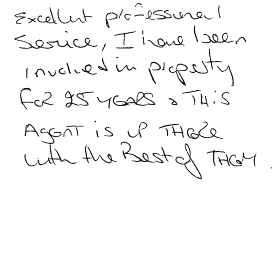 Excellent professional
Service, I have been
involved in property
FOR 25 YEARS & THIS
AGENT is UP THERE
with the Best of THEM